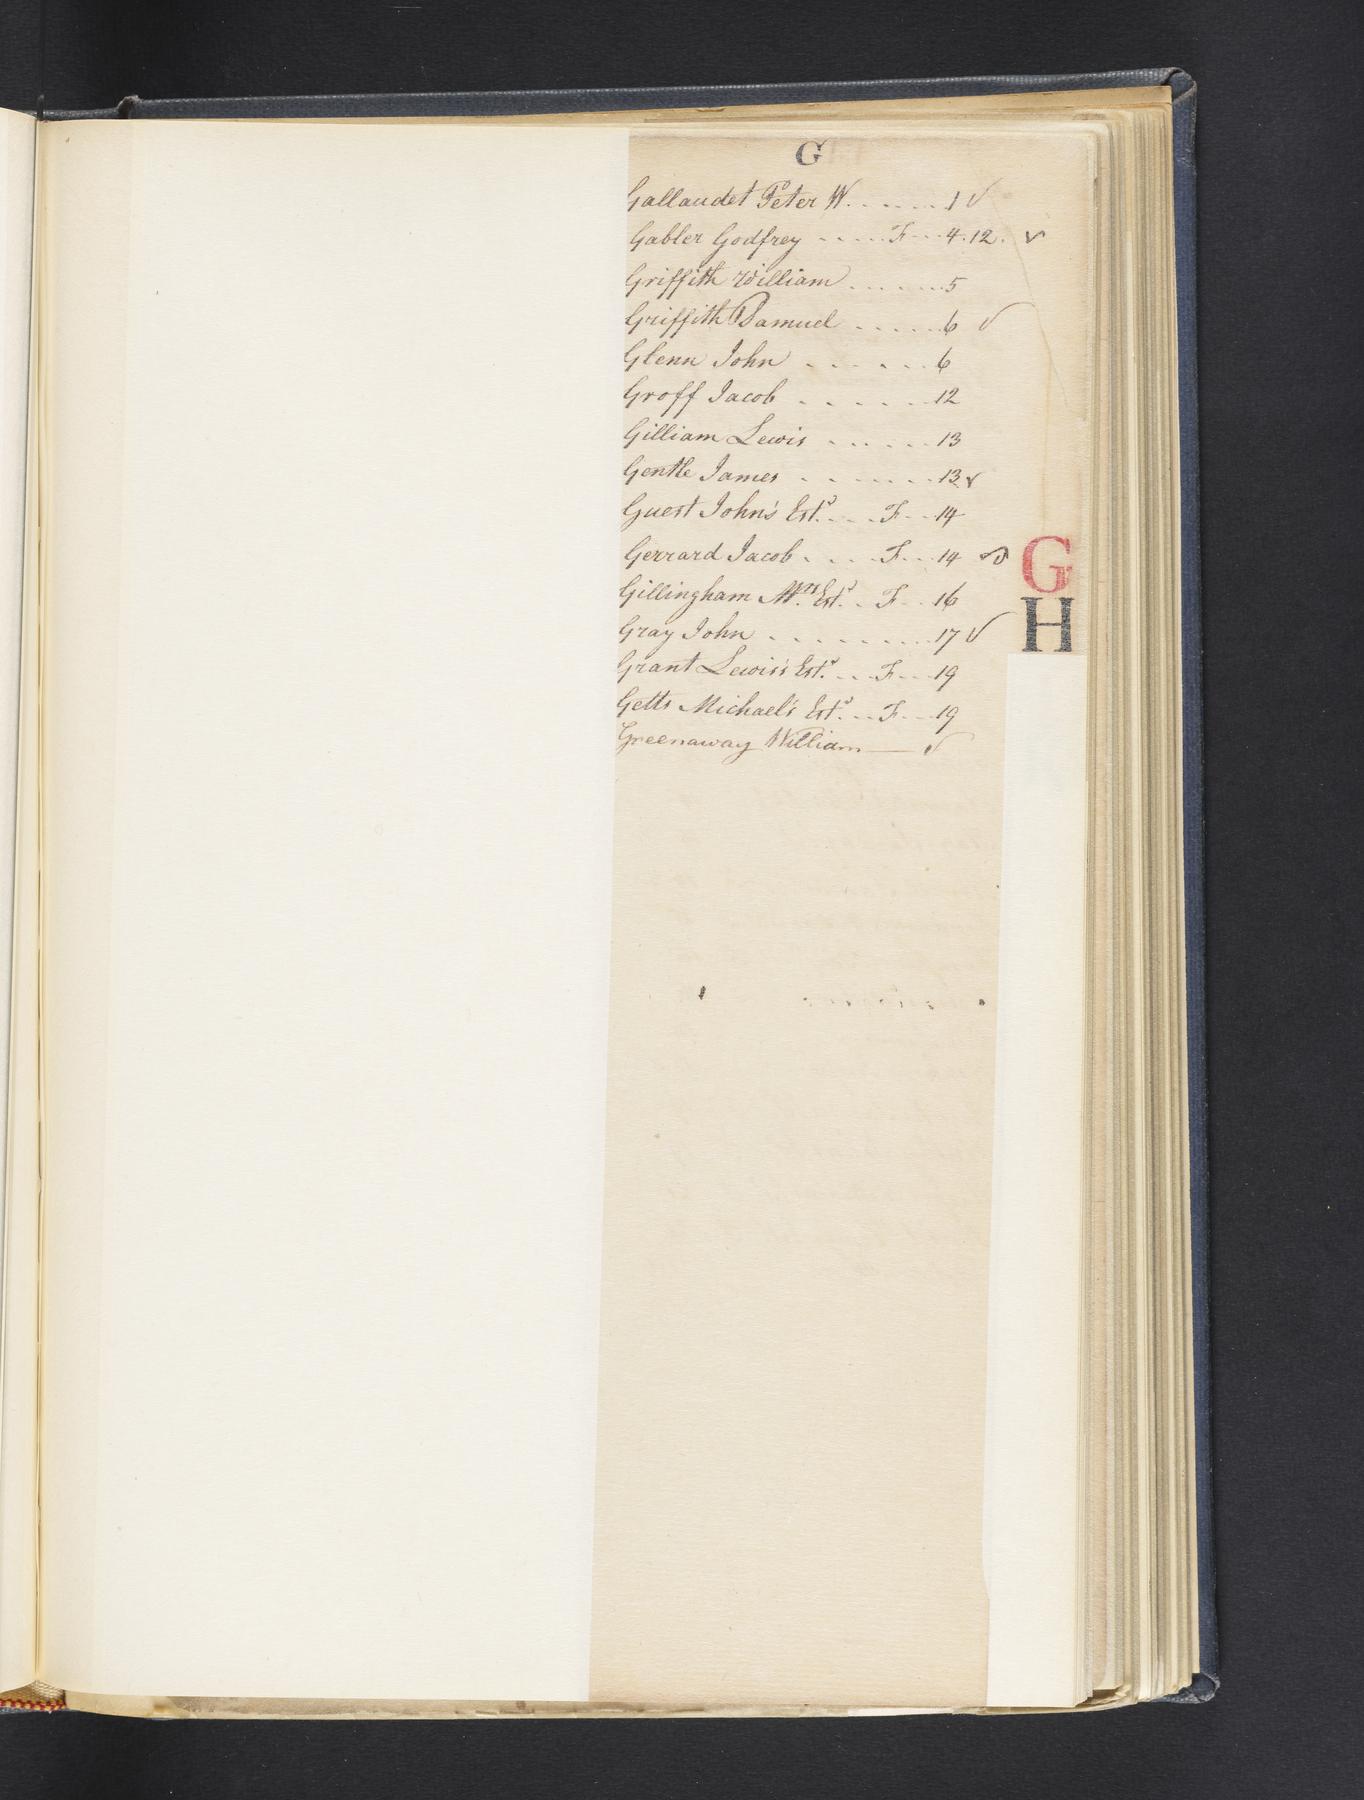 G
Gallaudet Peter W. . . . . . . 1 ✓
Gabler Godfrey . . . . . F . . . 4.12. ✓
Griffith William . . . . . . 5
Griffith Samuel . . . . . . 6 ✓
Glenn John . . . . . . 6
Groff Jacob . . . . . . 12
Gilliam Lewis . . . . . . 13
Gentle James . . . . . . . 13 ✓
Guest John's Est.ᵗ . . . F . . 14
Gerrard Jacob . . . . F . . . 14
Gillingham Est.ᵗ . . F . . 16
Gray John . . . . . . . . . 17 ✓
Grant Lewis's Est.ᵗ . . . F . . . 19
Getts Michael's Est.ᵗ . . . F . . . 19
Greenaway William — ✓
G
H